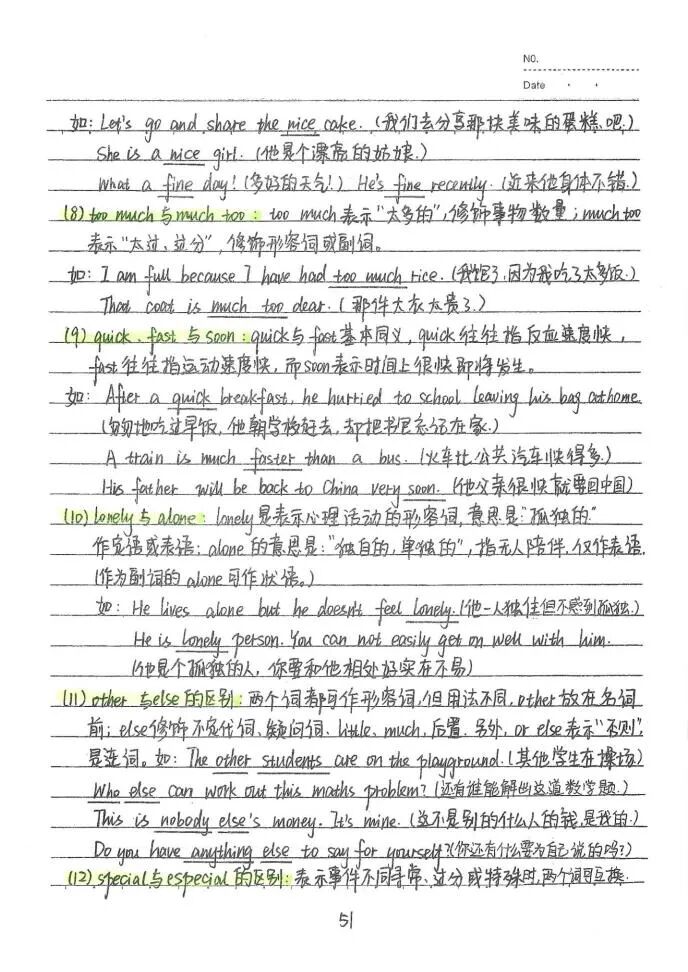 NO.
Date
如：Let's go and share the nice cake.（我们去分享那块美味的蛋糕吧.）
She is a nice girl.（他是个漂亮的姑娘.）
What a fine day!（多好的天气!）He's fine recently.（近来他身体不错.）
(8) too much与much too：too much表示"太多的"，修饰事物数量；much too
表示"太过、过分"，修饰形容词或副词。
如：I am full because I have had too much rice.（我饱了，因为我吃了太多饭.）
That coat is much too dear.（那件大衣太贵了.）
(9) quick、fast与soon：quick与fast基本同义，quick往往指反应速度快，
fast往往指运动速度快，而soon表示时间上很快即将发生。
如：After a quick breakfast, he hurried to school leaving his bag at home.
（匆匆地吃过早饭，他朝学校赶去，却把书包忘记在家.）
A train is much faster than a bus.（火车比公共汽车快得多.）
His father will be back to China very soon.（他父亲很快就要回中国）
(10) lonely与alone：lonely是表示心理活动的形容词，意思是"孤独的"
作定语或表语；alone的意思是："独自的，单独的"，指无人陪伴.仅作表语.
（作为副词的alone可作状语。）
如：He lives alone but he doesn't feel lonely.（他一人独住但不感到孤独.）
He is lonely person. You can not easily get on well with him.
（他是个孤独的人，你要和他相处好实在不易）
(11) other与else的区别：两个词都可作形容词，但用法不同，other放在名词
前；else修饰不定代词、疑问词、little、much，后置.另外，or else表示"否则"，
是连词。如：The other students are on the playground.（其他学生在操场）
Who else can work out this maths problem?（还有谁能解出这道数学题.）
This is nobody else's money. It's mine.（这不是别的什么人的钱，是我的.）
Do you have anything else to say for yourself?（你还有什么要为自己说的吗?）
(12) special与especial的区别：表示事件不同寻常、过分或特殊时，两个词可互换.
51